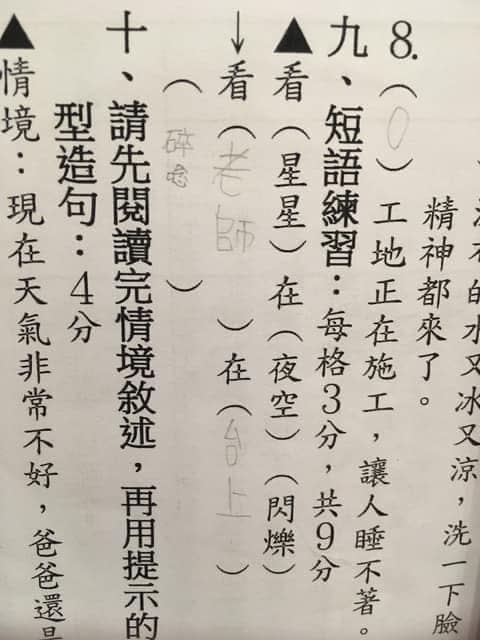 又冰又涼，洗一下臉
精神都來了。
8.（0）工地正在施工，讓人睡不著。
九、短語練習：每格3分，共9分
▲看（星星）在（夜空）（閃爍）
↓看（老師）在（台上）
（碎唸）
十、請先閱讀完情境敘述，再用提示的
型造句：4分
▲情境：現在天氣非常不好，爸爸還是